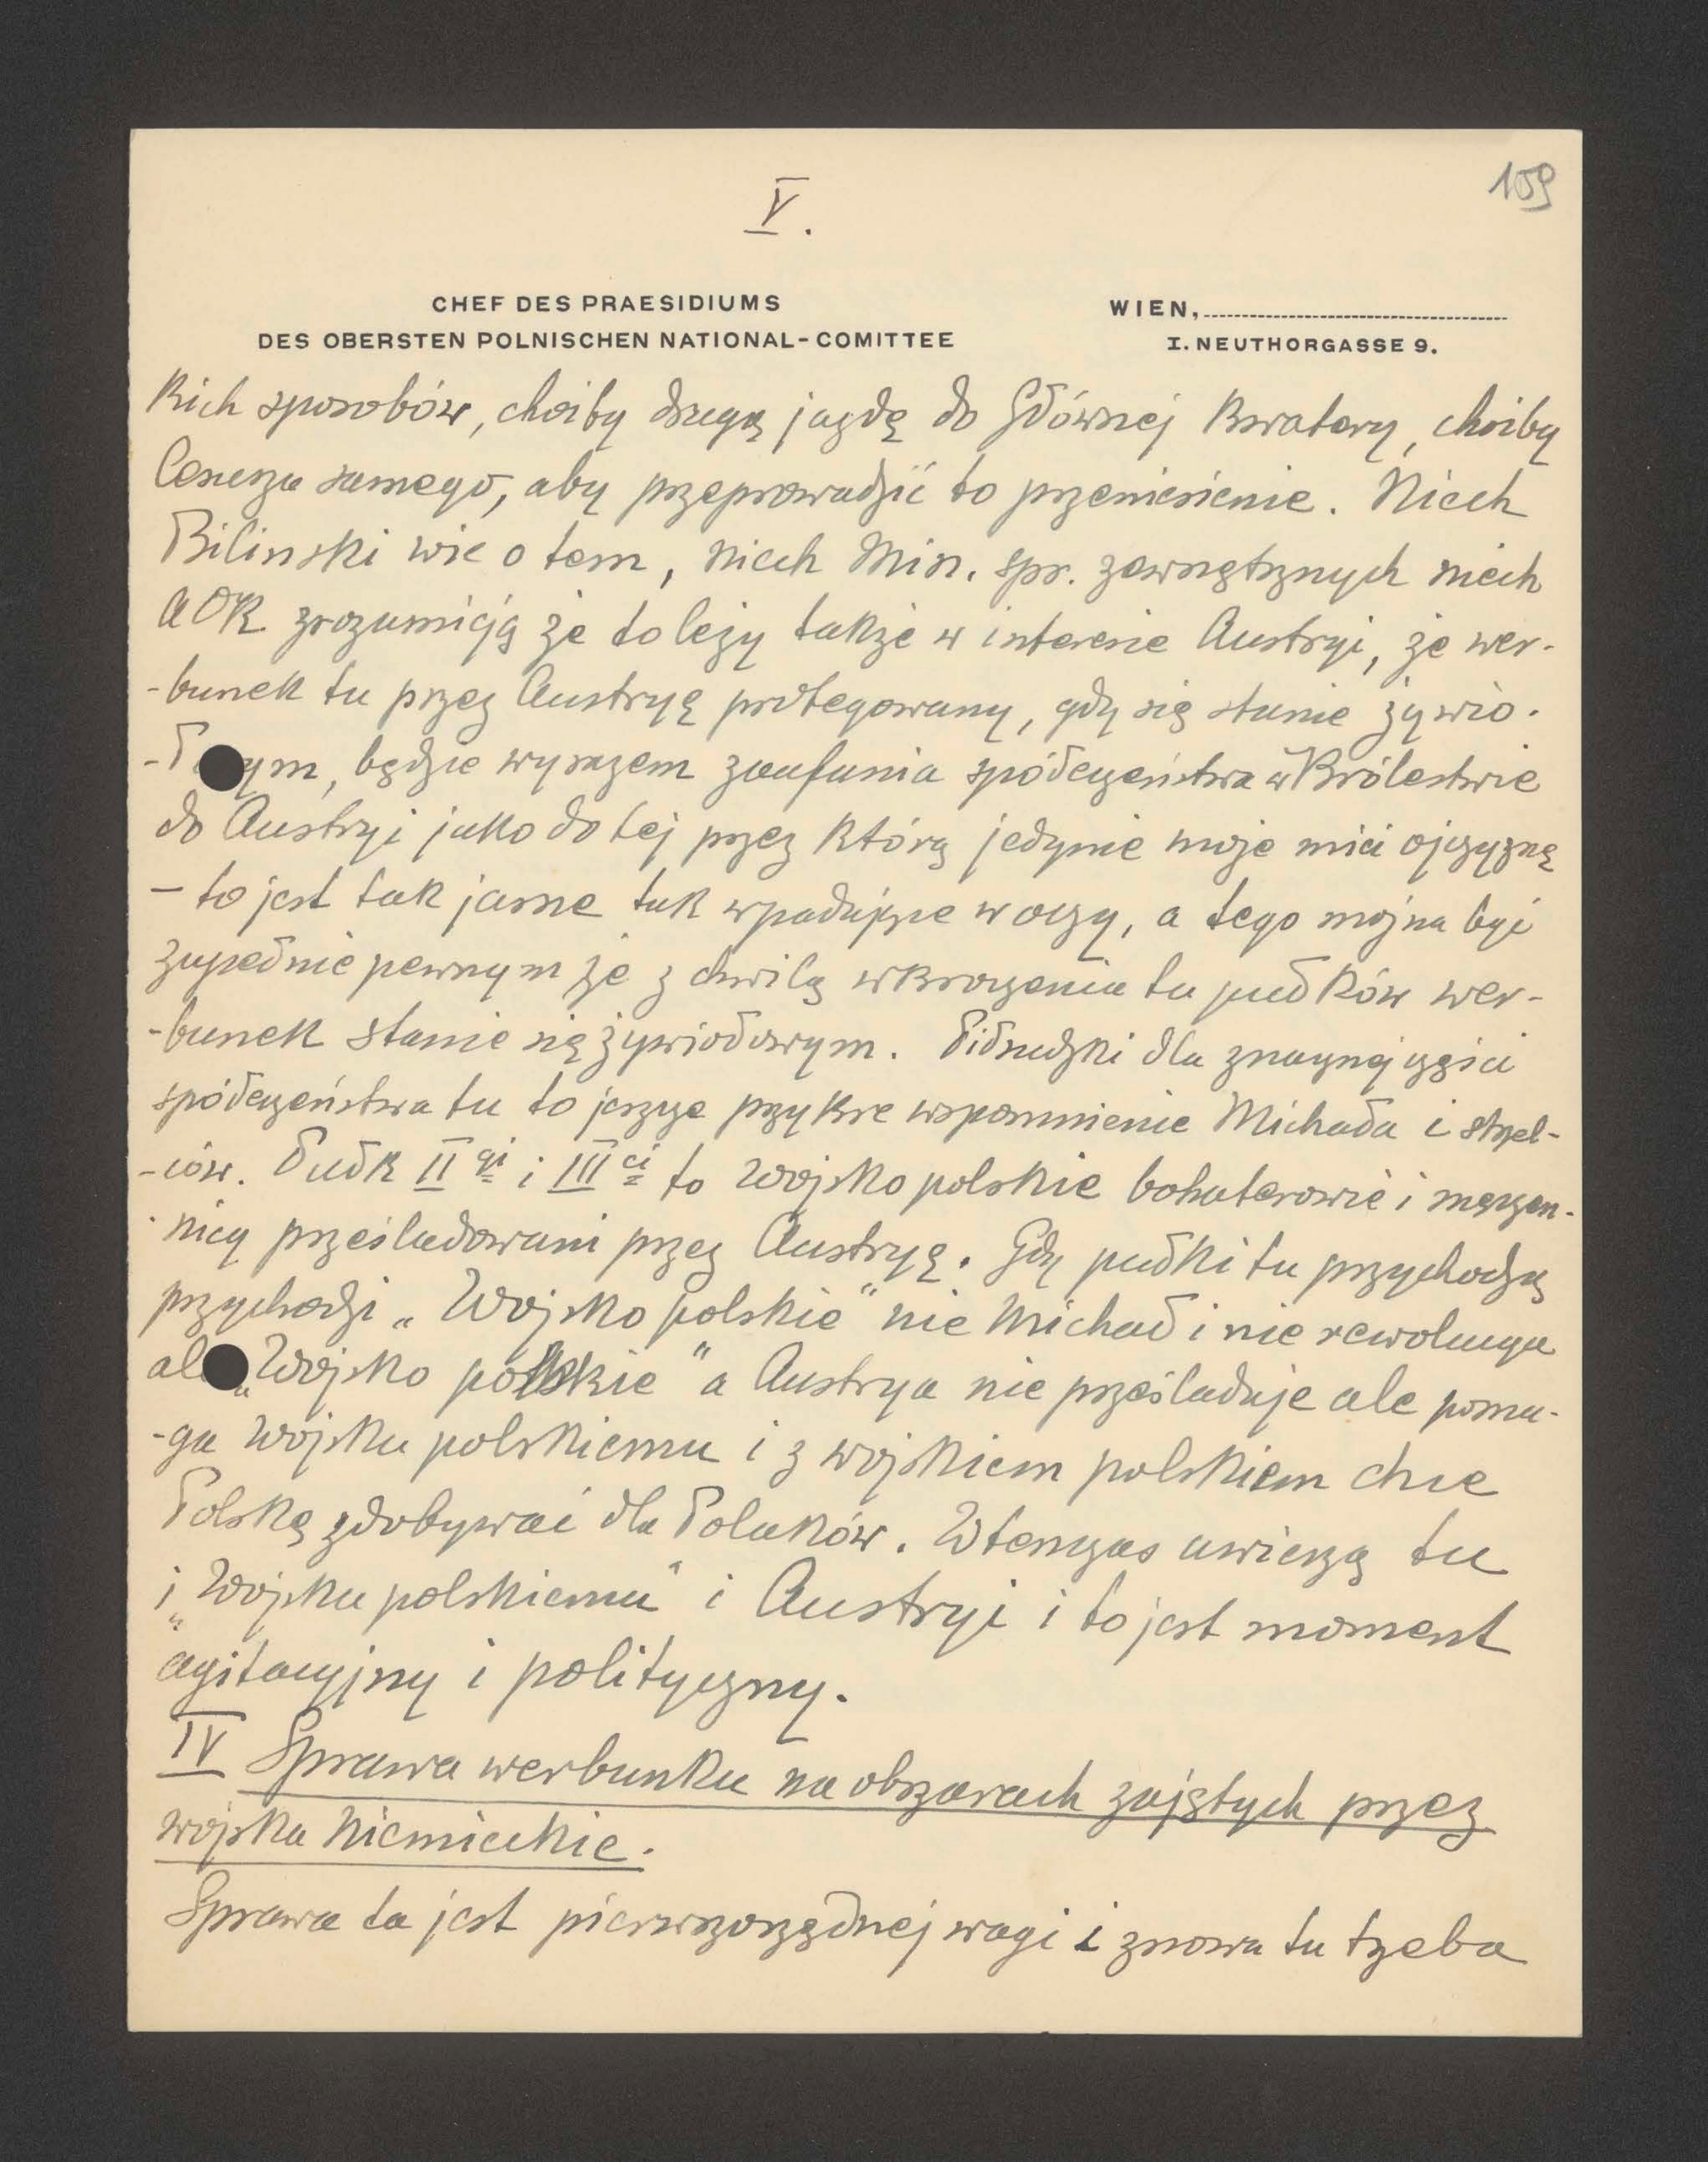 V.
159
CHEF DES PRAESIDIUMS
DES OBERSTEN POLNISCHEN NATIONAL-COMITTEE
WIEN,
I. NEUTHORGASSE 9.
kich sposobów, choćby drugą jazdę do Głównej Kwatery, choćby
Cesarza samego, aby przeprowadzić to przeniesienie. Niech
Bilinski wie o tem, niech Min. spr. zewnętrznych niech
AOK zrozumieją że to leży także w interesie Austryi, że wer-
-bunek tu przez Austryę protegowany, gdy się stanie żywio-
-ł ym, będzie wyrazem zaufania społeczeństwa w Królestwie
do Austryi jako do tej przez którą jedynie może mieć ojczyznę
— to jest tak jasne tak wpadające w oczy, a tego można być
zupełnie pewnym że z chwilą wkroczenia tu pułków wer-
-bunek stanie się żywiołowym. Piłsudzki dla znacznej części
społeczeństwa tu to jeszcze przykre wspomnienie Michała i strzel-
-ców. Pułk II gi i III ci to Wojsko polskie bohaterowie i męczen-
nicy prześladowani przez Austryę. Gdy pułki tu przychodzą
przychodzi „Wojsko polskie" nie Michał i nie rewolucya
al „Wojsko polskie" a Austrya nie prześladuje ale poma-
-ga wojsku polskiemu i z wojskiem polskiem chce
Polskę zdobywać dla Polaków. Wtenczas uwierzą tu
i „Wojsku polskiemu" i Austryi i to jest moment
agitacyjny i polityczny.
IV Sprawa werbunku na obszarach zajętych przez
wojska niemieckie.
Sprawa ta jest pierwszorzędnej wagi i znowu tu trzeba